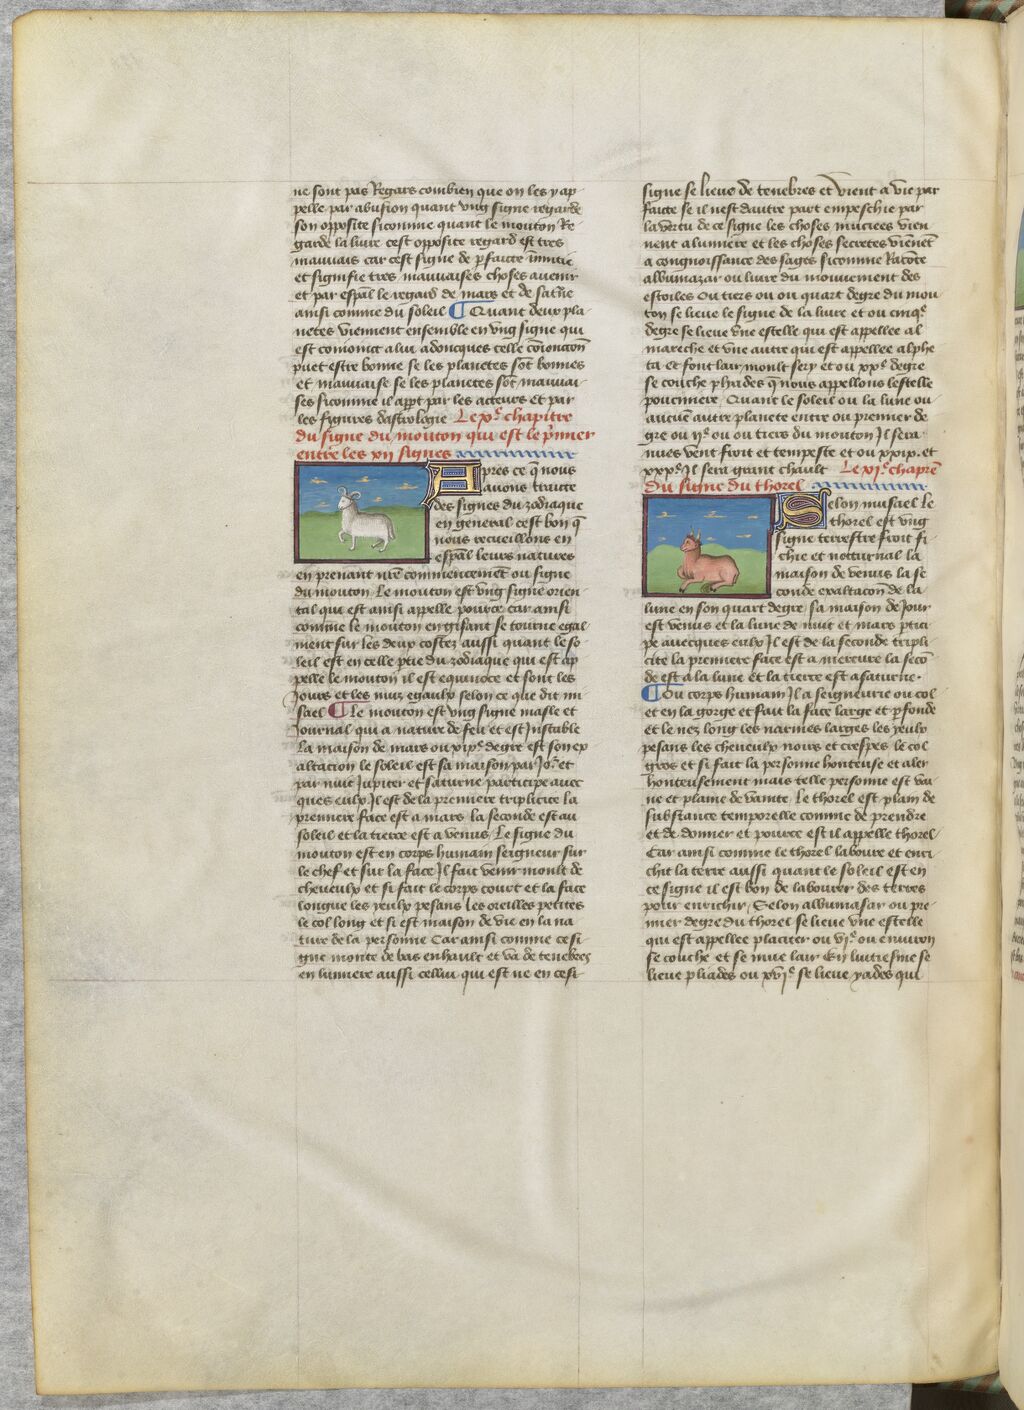 ne sont pas Regars combien que on les y ap
pelle par abusion quant vng signe regarde
son opposite sicomme quant le mouton Re
garde la liure cest opposite regard est tres
mauuais car cest signe de pfaicte inmitie
et signifie tres mauuaises choses auenir
et par espal le regard de mars et de satne
ainsi comme du soleil ¶ Quant deux pla
netes viennent ensemble en vng signe qui
est conioinct a lui adoncques celle coniunction
puet estre bonne se les planetes sot bonnes
et mauuaise se les planetes sot mauuai
ses sicomme il appt par les acteurs et par
les figures dastrologie Le xe chapitre
du signe du mouton qui est le pmier
entre les xii signes
Apres ce q nous
auons traicte
des signes du zodiaque
en general cest bon q
nous recueillons en
espal leurs natures
en prenant nre commencemet ou signe
du mouton Le mouton est vng signe orien
tal qui est ainsi appelle pource car ainsi
comme le mouton en gisant se tourne egal
ment sur les deux costez aussi quant le so
leil est en celle ptie du zodiaque qui est ap
pelle le mouton il est equinoce et sont les
Jours et les nuiz egaulx selon ce que dit mi
sael ¶ Le mouton est vng signe masle et
Journal qui a nature de feu et est Instable
La maison de mars ou xixe degre est son ex
altacion le soleil est sa maison par Jor et
par nuit Jupiter et saturne participe auec
ques eulx Il est de la premiere triplicite la
premiere face est a mars la seconde est au
soleil et la tierce est a venus Le signe du
mouton est en corps humain seigneur sur
le chef et sur la face Il fait venir moult de
cheueulx et si fait le corps court et la face
longue les yeulx pesans les oreilles petites
le col long et si est maison de vie en la na
ture de la personne Car ainsi comme ce si
gne monte de bas en hault et va de tenebres
en lumiere aussi cellui qui est ne en cest
signe se lieue de tenebres et vient a vie par
faicte se il nest dautre part empeschie par
la vertu de ce signe les choses muciees vien
nent a lumiere et les choses secretes vienet
a congnoissance des sages sicomme Racote
albumazar ou liure du mouuement des
estoiles Ou tiers ou ou quart degre du mou
ton se lieue le signe de la liure et ou cinqe
degre se lieue vne estelle qui est appellee al
mareche et vne autre qui est appellee alphe
ta et font lair moult sery et ou xxe degre
se couche phiades q nous appellons lestelle
poucimere Quant le soleil ou la lune ou
aucun autre planete entre ou premier de
gre ou iie ou ou tiers du mouton Il sera
nues vent froit et tempeste et ou xxix et
xxxe Il sera grant chault Le xie chapre
du signe du thorel
Selon misael le
thorel est vng
signe terrestre froit si
chie et nocturnal la
maison de venus la se
conde exaltacon de la
lune en son quart degre sa maison de Jour
est venus et la lune de nuit et mars ptici
pe auecques eulx Il est de la seconde tripli
cite la premiere face est a mercure la seco
de est a la lune et la tierce est a saturne
¶ Ou corps humain Il a seigneurie ou col
et en la gorge et fait la face large et pfonde
et le nez long les narines larges les yeulx
pesans les cheueulx noirs et crespes le col
gros et si fait la personne honteuse et aler
honteusement mais telle personne est vai
ne et plaine de vanite Le thorel est plain de
substance temporelle comme de prendre
et de donner et pource est il appelle thorel
Car ainsi comme le thorel laboure et enri
chit la terre aussi quant le soleil est en
ce signe il est bon de labourer des terres
pour enrichir Selon albumasar ou pre
mier degre du thorel se lieue vne estelle
qui est appellee placiter ou vie ou enuiron
se couche et se mue lair En luitiesme se
lieue pliades ou xvie se lieue yades qui